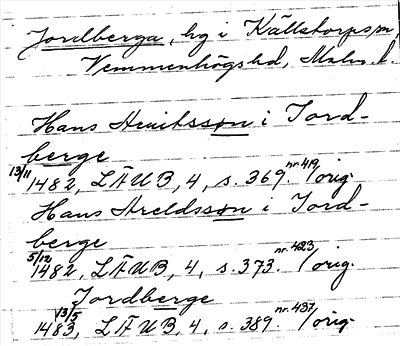 Jordberga, hg i Källstorps sn,
Vemmenhögs hd, Malm. l.
Hans Aruitsson i Jord-
berge
13/11 1482, LÄUB, 4, s. 369. nr 419/orig.
Hans Areldsson i Jord-
berge
5/12 1482, LÄUB, 4, s. 373. nr 423/orig.
Jordberge
13/5 1483, LÄUB, 4, s. 389. nr 437/orig.